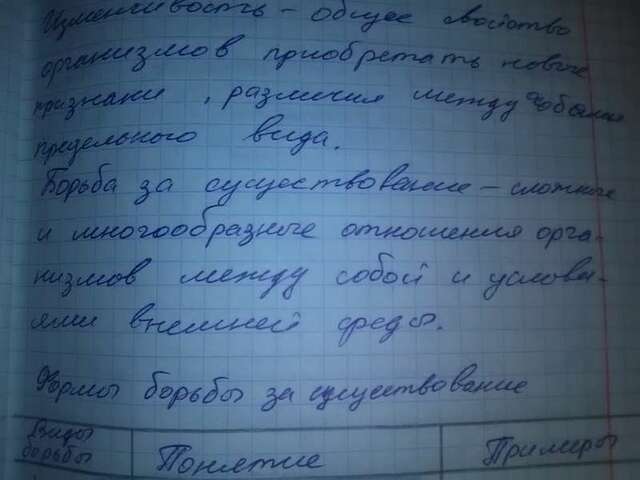 Изменчивость – общее свойство
организмов приобретать новые
признаки, различия между
предельного вида.
Борьба за существование – сложные
и многообразные отношения орга-
низмов между собой и услови-
ями внешней среды.
Формы борьбы за существование
Виды борьбы
Понятие
Примеры